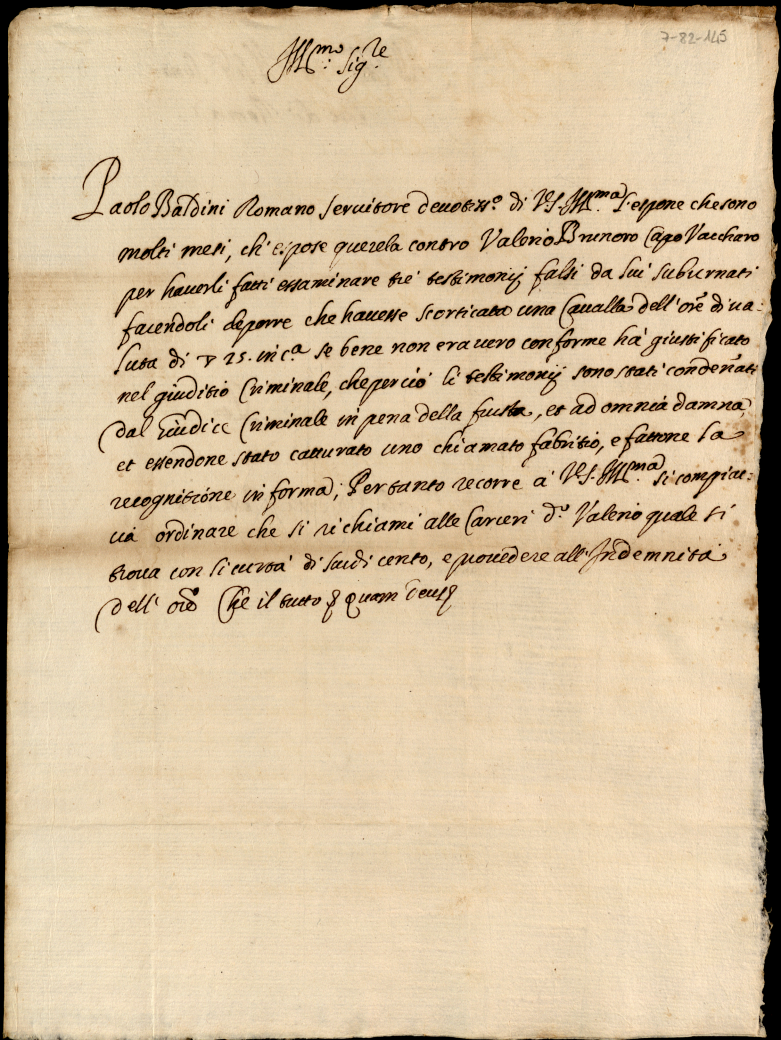 7-82-145
Ill.mo Sig.re
Paolo Baldini Romano servitore devotiss.o di V.S. Ill.ma l'espone che sono
molti mesi, ch'espose querela contro Valerio Brunoro Capo Vaccharo
per haverli fatti essaminare tre testimonij falsi da lui suburnati
facendoli deporre che havesse scorticata una Cavalla dell'ore di va-
luta di ▽ 25. in c.a se bene non era vero conforme ha giustificato
nel giuditio Criminale, che perciò li testimonij sono stati condennati
dal Giudice Criminale in pena della frusta, et ad omnia damna,
et essendone stato catturato uno chiamato fabritio, e fattone la
recognitione in forma; Pertanto recorre a V.S. Ill.ma si compiac-
cia ordinare che si richiami alle Carceri d.o Valerio quale si
trova con sicurtà di scudi cento, e provedere all'Indennità
dell'ore Che il tutto quam Deus